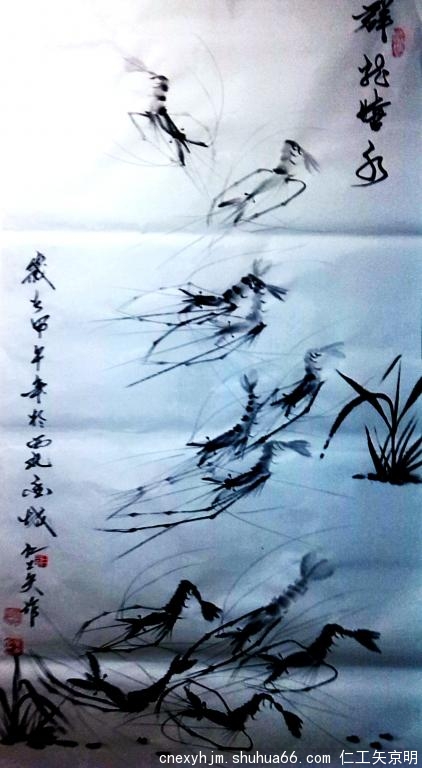 群龙嬉水
歲在甲午年於西城仁工矢作
cnexyhjm.shuhua66.com 仁工矢京明